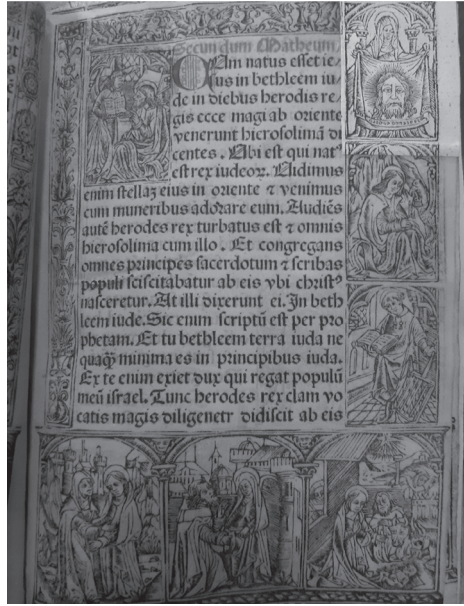 Secundum Matheum
CUm natus esset ie
sus in bethleem iu
de in diebus herodis re
gis ecce magi ab oriente
venerunt hierosolimã di
centes. Ubi est qui natꝰ
est rex iudeoꝝ. Uidimus
enim stellaꝫ eius in oriente ⁊ venimus
cum muneribus adorare eum. Audiẽs
autẽ herodes rex turbatus est ⁊ omnis
hierosolima cum illo. Et congregans
omnes principes sacerdotum ⁊ scribas
populi sciscitabatur ab eis vbi christꝰ
nasceretur. At illi dixerunt ei. In beth
leem iude. Sic enim scriptũ est per pro
phetam. Et tu bethleem terra iuda ne
quaqꝫ minima es in principibus iuda.
Ex te enim exiet dux qui regat populũ
meũ israel. Tunc herodes rex clam vo
catis magis diligenetr didiscit ab eis